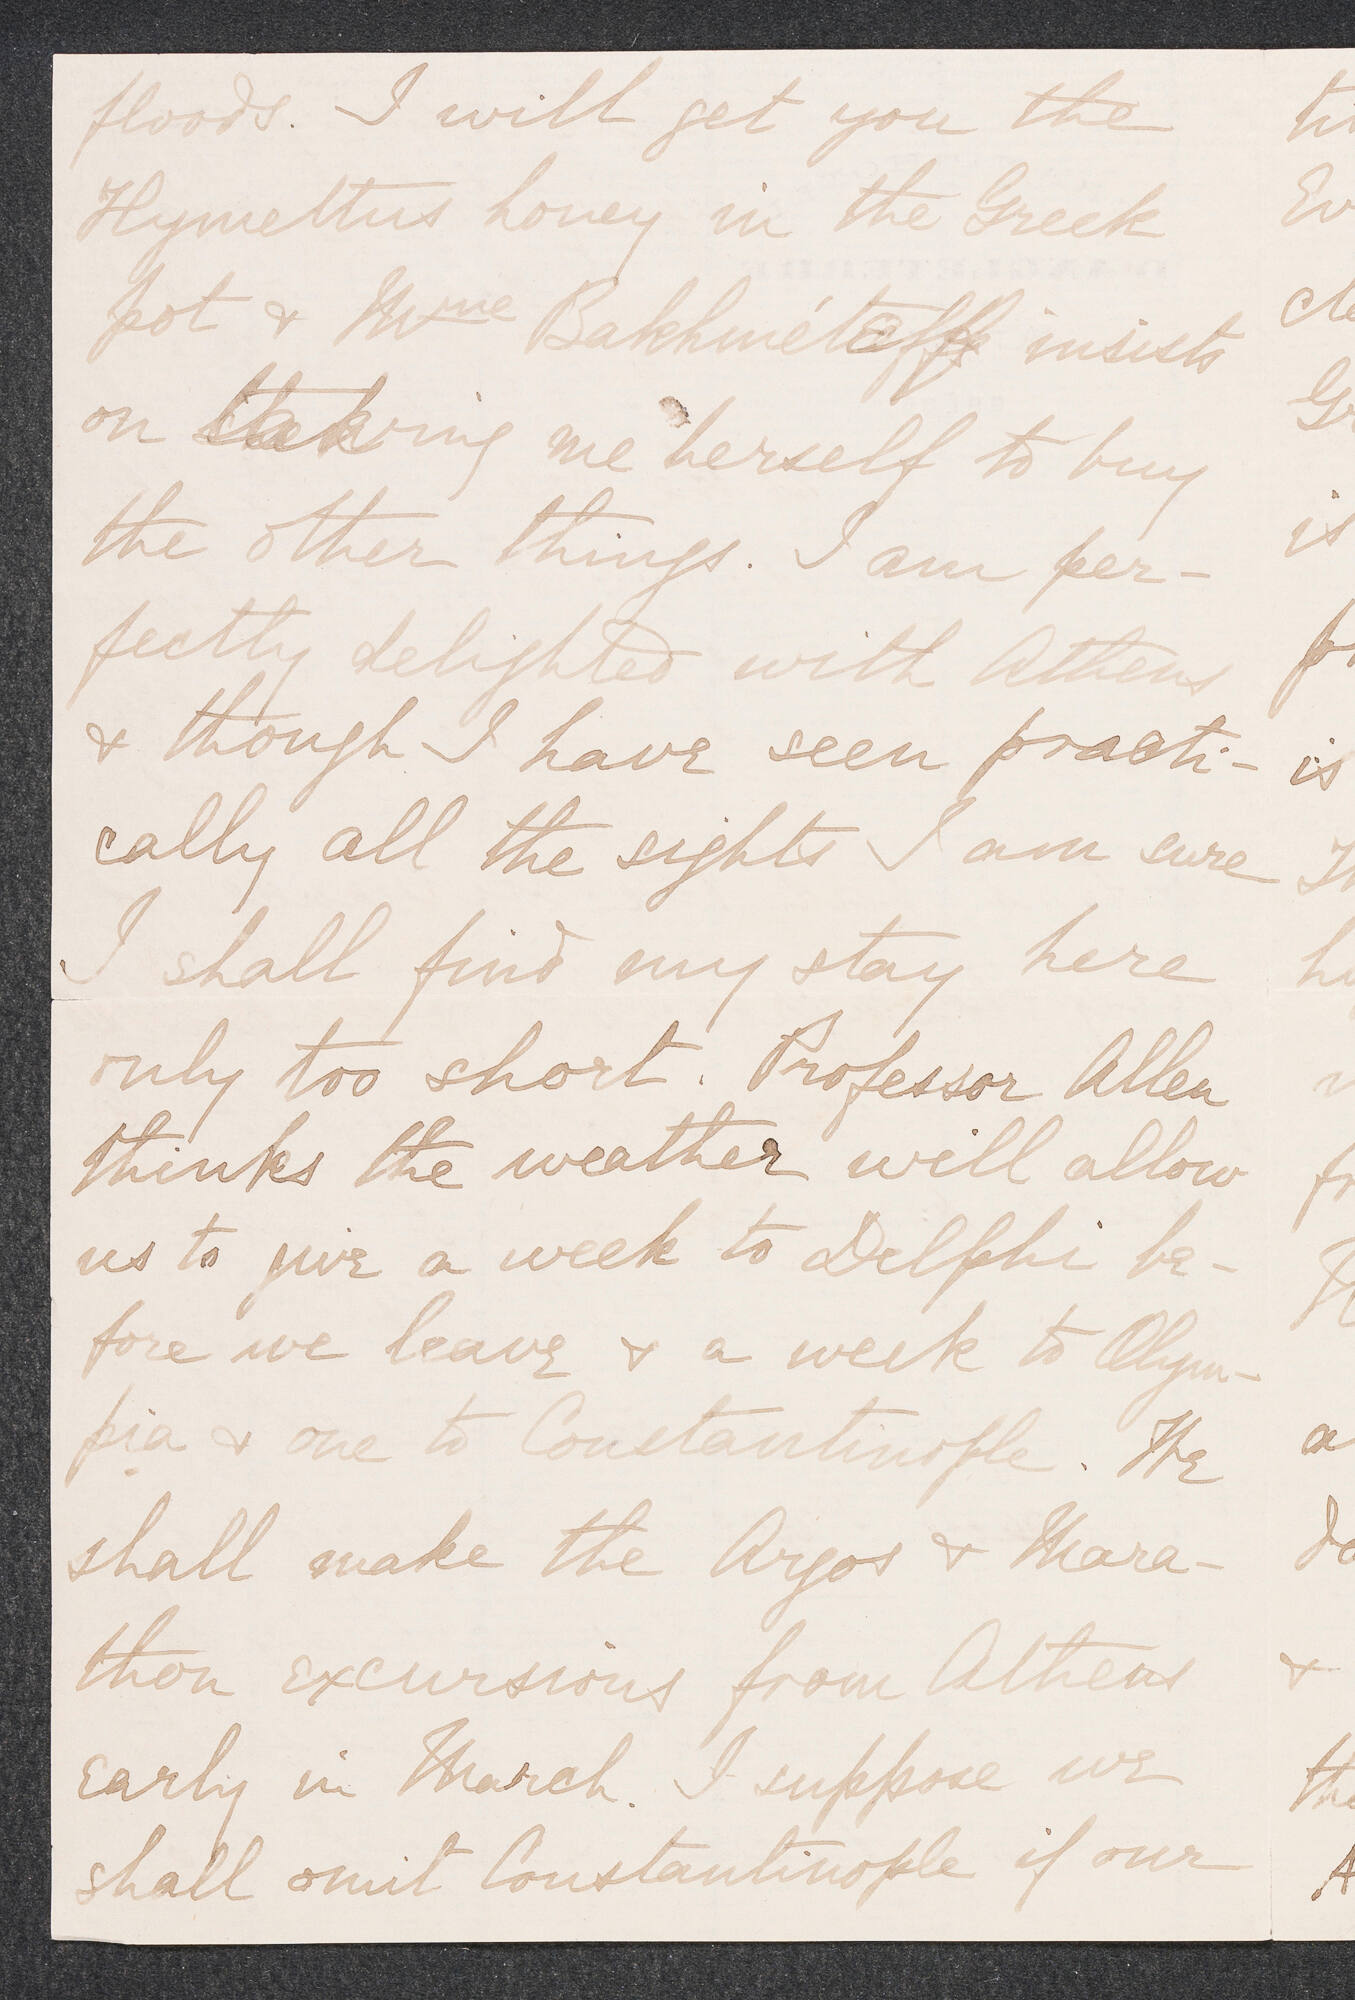 floods. I will get you the
Hymettus honey in the Greek
pot & Mme Bakhméteff insists
on taking me herself to buy
the other things. I am per-
fectly delighted with Athens
& though I have seen practi-
cally all the sights I am sure
I shall find my stay here
only too short. Professor Allen
thinks the weather will allow
us to give a week to Delphi be-
fore we leave & a week to Olym-
pia & one to Constantinople. We
shall make the Argos & Mara-
thon excursions from Athens
early in March. I suppose we
shall omit Constantinople if our
is
is
&